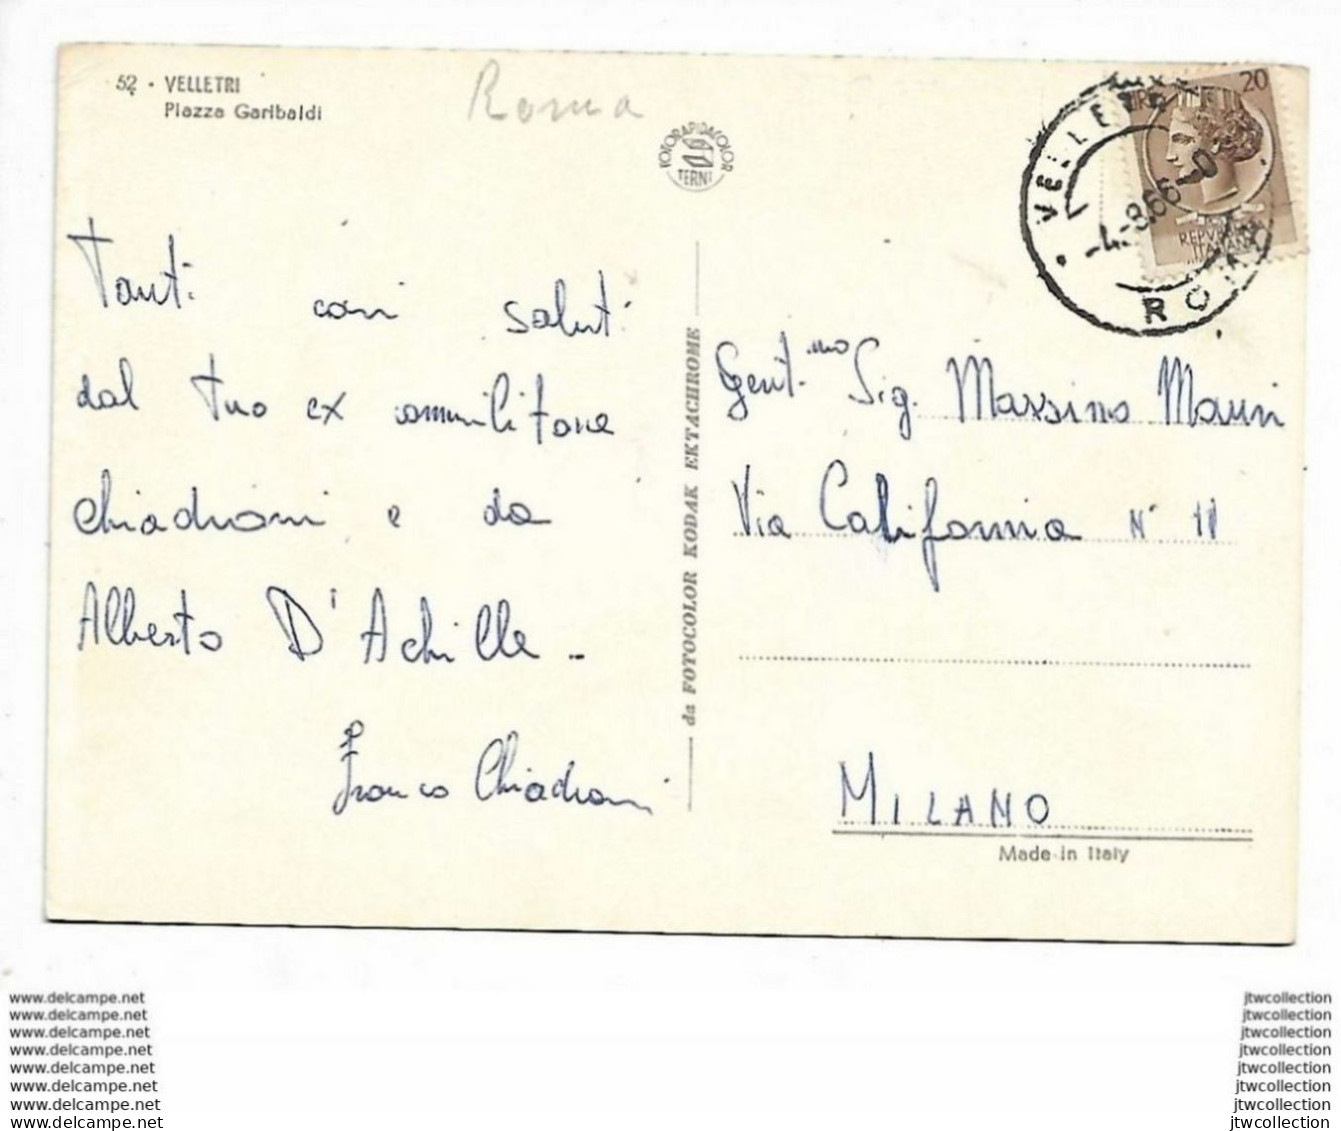 52 - VELLETRI
Piazza Garibaldi
Roma
FOTORAPIDACOLOR
TERNI
20
REPVBBLICA
ITALIANA
VELLETRI
-4.-8.66-0
ROMA
Tanti cari saluti
dal tuo ex commilitone
Chiadroni e da
Alberto D'Achille -
Franco Chiadroni
da FOTOCOLOR KODAK EKTACHROME
Gent.mo Sig. Massimo Mauri
Via California N° 11
MILANO
Made in Italy
www.delcampe.net
www.delcampe.net
www.delcampe.net
www.delcampe.net
www.delcampe.net
www.delcampe.net
www.delcampe.net
www.delcampe.net
jtwcollection
jtwcollection
jtwcollection
jtwcollection
jtwcollection
jtwcollection
jtwcollection
jtwcollection